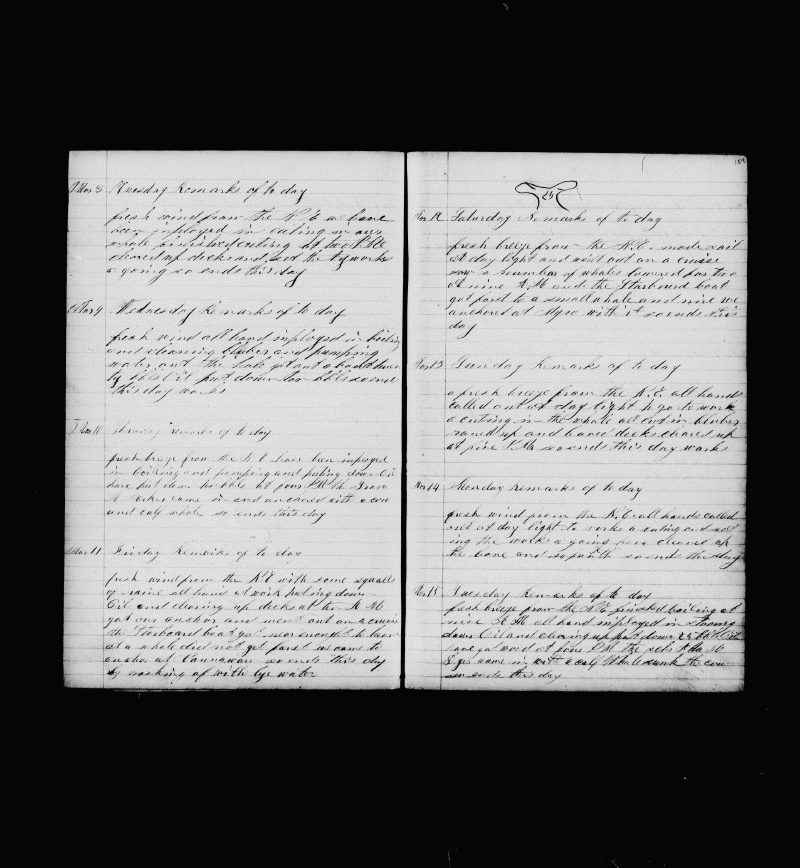 Tuesday Remarks of to day
fresh wind from the N E we have
been imployed in cuting in our
whale finished cuting at two P M
cleared up decks and sed the tryworks
a going so ends this day
Mar 9 Wednesday Remarks of to day
fresh wind all hand imployed in boiling
and cleaning bluber and pumping
water out the hole got out about
put down
this day works
Mar 10 remarks of to day
fresh breze from the N E have been imployed
in boiling and pumping and puting down Oil
have put down bbls at four P M the
came in and anchored with a cow
and calf whale so ends this day
Mar 11 Friday Remarks of to day
fresh wind from the N E with some squalls
of raine all hand at work puting down
Oil and clearing up decks at ten A M
got our anchor and went out on a cruise
the Starboard boat got near enought to
at a whale did not get fast we came to
anchor at so ends this day
by washing of with lye water
159
Mar 12 Saturday Remarks of to day
fresh breeze from the N.E. made sail
at day light and went out on a cruise
saw a number of whales lowered for two
at nine A M and the Starboard boat
got fast to a small whale and we
anchored at with it so ends this
day
Mar 13 Sunday Remarks of to day
a fresh breeze from the N.E. all hands
called out at day light to go to work
a cuting in the whale all cut in bluber
up and decks cleared up
at five P.M. so ends this day works
Mar 14 Monday Remarks of to day
fresh wind from the N.E all hands called
out at day light to works a cuting and
ing the works a going cleared up
the bone and so ends this day
Mar 15 Tuesday Remarks of to day
fresh breze from the N.E. finished boiling at
nine A.M all hand imployed in stowing
down Oil and clearing up put down 25
wood at four P.M. the
came in with a calf Whale sunk the cow
so ends this day